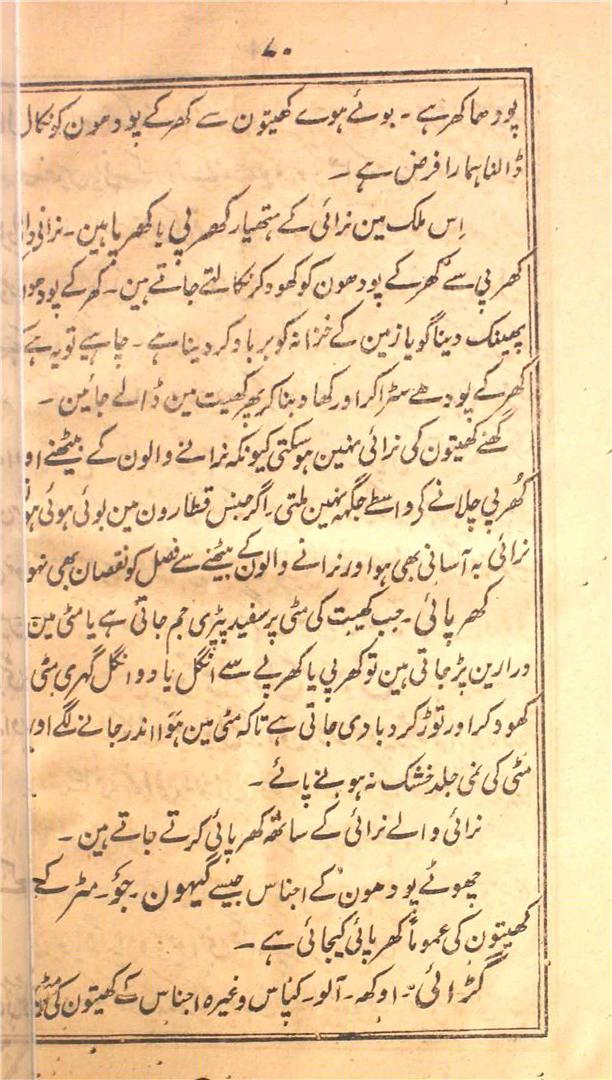 ۷۰
پودھا کھر ہے - بوئے ہوے کھیتون سے کھر کے پودھون کو نکال
ڈالنا ہمارا فرض ہے -
اِس ملک مین نرائی کے ہتھیار کھرپی یا کھرپا ہین - نرانی وا
کھرپی سے کھر کے پودھون کو کھود کر نکالتے جاتے ہین - کھر کے پودھون
پھینک دینا گویا زمین کے خزانہ کو برباد کر دینا ہے - چاہیے تو یہ ہے ک
کھر کے پودھے سٹرا کر اور کھاد بنا کر پھر کھیت مین ڈالے جائین -
گھنے کھیتون کی نرائی نہین ہو سکتی کیونکہ نرانے والون کے بیٹھنے او
کُھرپی چلانے کی واسطے جگہہ نہین ملتی - اگر جنس قطارون مین بوئی ہوئی ہو
نرائی بہ آسانی بھی ہو اور نرانے والون کے بیٹھنے سے فصل کو نقصان بھی نہو
کھرپائی - جب کھیت کی مٹی پر سفید پٹری جم جاتی ہے یا مٹی مین
درارین پڑ جاتی ہین تو کھرپی یا کھرپے سے انگل یا دو انگل گہری مٹی
کھود کر اور توڑ کر دبا دی جاتی ہے تاکہ مٹی مین ہَوا اندر جانے لگے اور
مٹی کی نمی جلد خشک نہ ہونے پائے -
نرائی والے نرائی کے ساتھ کھرپائی کرتے جاتے ہین -
چھوٹے پودھون کے اجناس جیسے گیہون - جَو - مٹر کے
کھیتون کی عموماً کھرپائی کیجاتی ہے -
گڑائی - اوکھہ - آلو - کپاس وغیرہ اجناس کے کھیتون کی